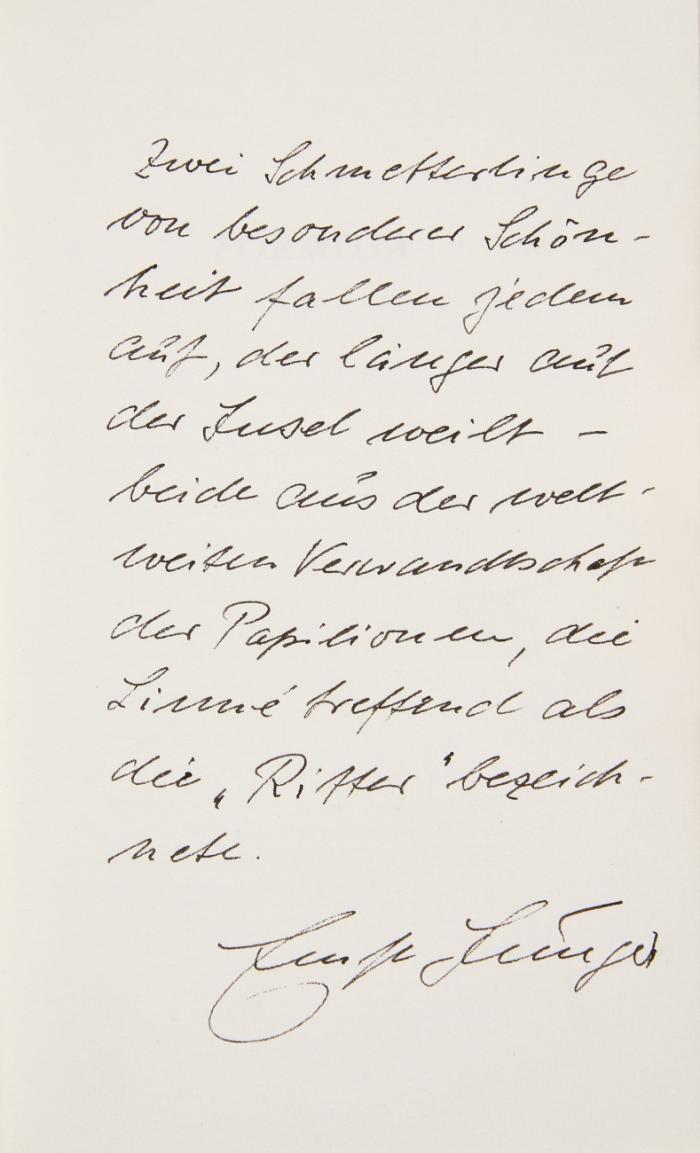 Zwei Schmetterlinge
von besonderer Schön-
heit fallen jedem
auf, der länger auf
der Insel weilt –
beide aus der welt-
weiten Verwandtschaft
der Papilionen, die
Linné treffend als
die „Ritter“ bezeich-
nete.
Ernst Jünger